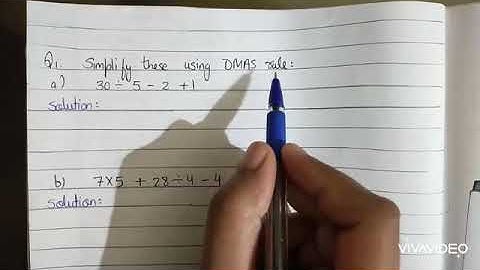 Q1. Simplify these using DMAS rule:
a) 30 ÷ 5 - 2 + 1
Solution:
b) 7x5 + 28 ÷ 4 - 4
Solution:
VIVAVIDEO